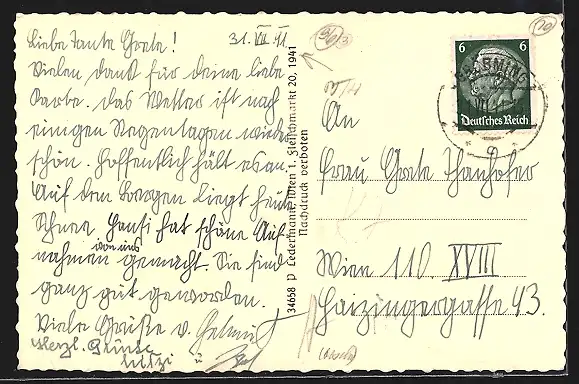 31. VII. 41
Liebe Tante Grete!
Vielen Dank für deine liebe
Karte. Das Wetter ist nach
einigen Regentagen wieder
schön. Hoffentlich hält es an.
Auf den Bergen liegt heute
Schnee. Hansi hat schöne Auf-
nahmen von uns gemacht. Sie sind
ganz gut geworden.
Viele Grüße v. Helmut
Herzl. Grüße
Mitzi u.
34658 P. Ledermann, Wien 1, Fleischmarkt 20, 1941
Nachdruck verboten
6 6
Deutsches Reich
An
Frau Grete Thanhofer
Wien 110 XVIII
Haizingergasse 43.